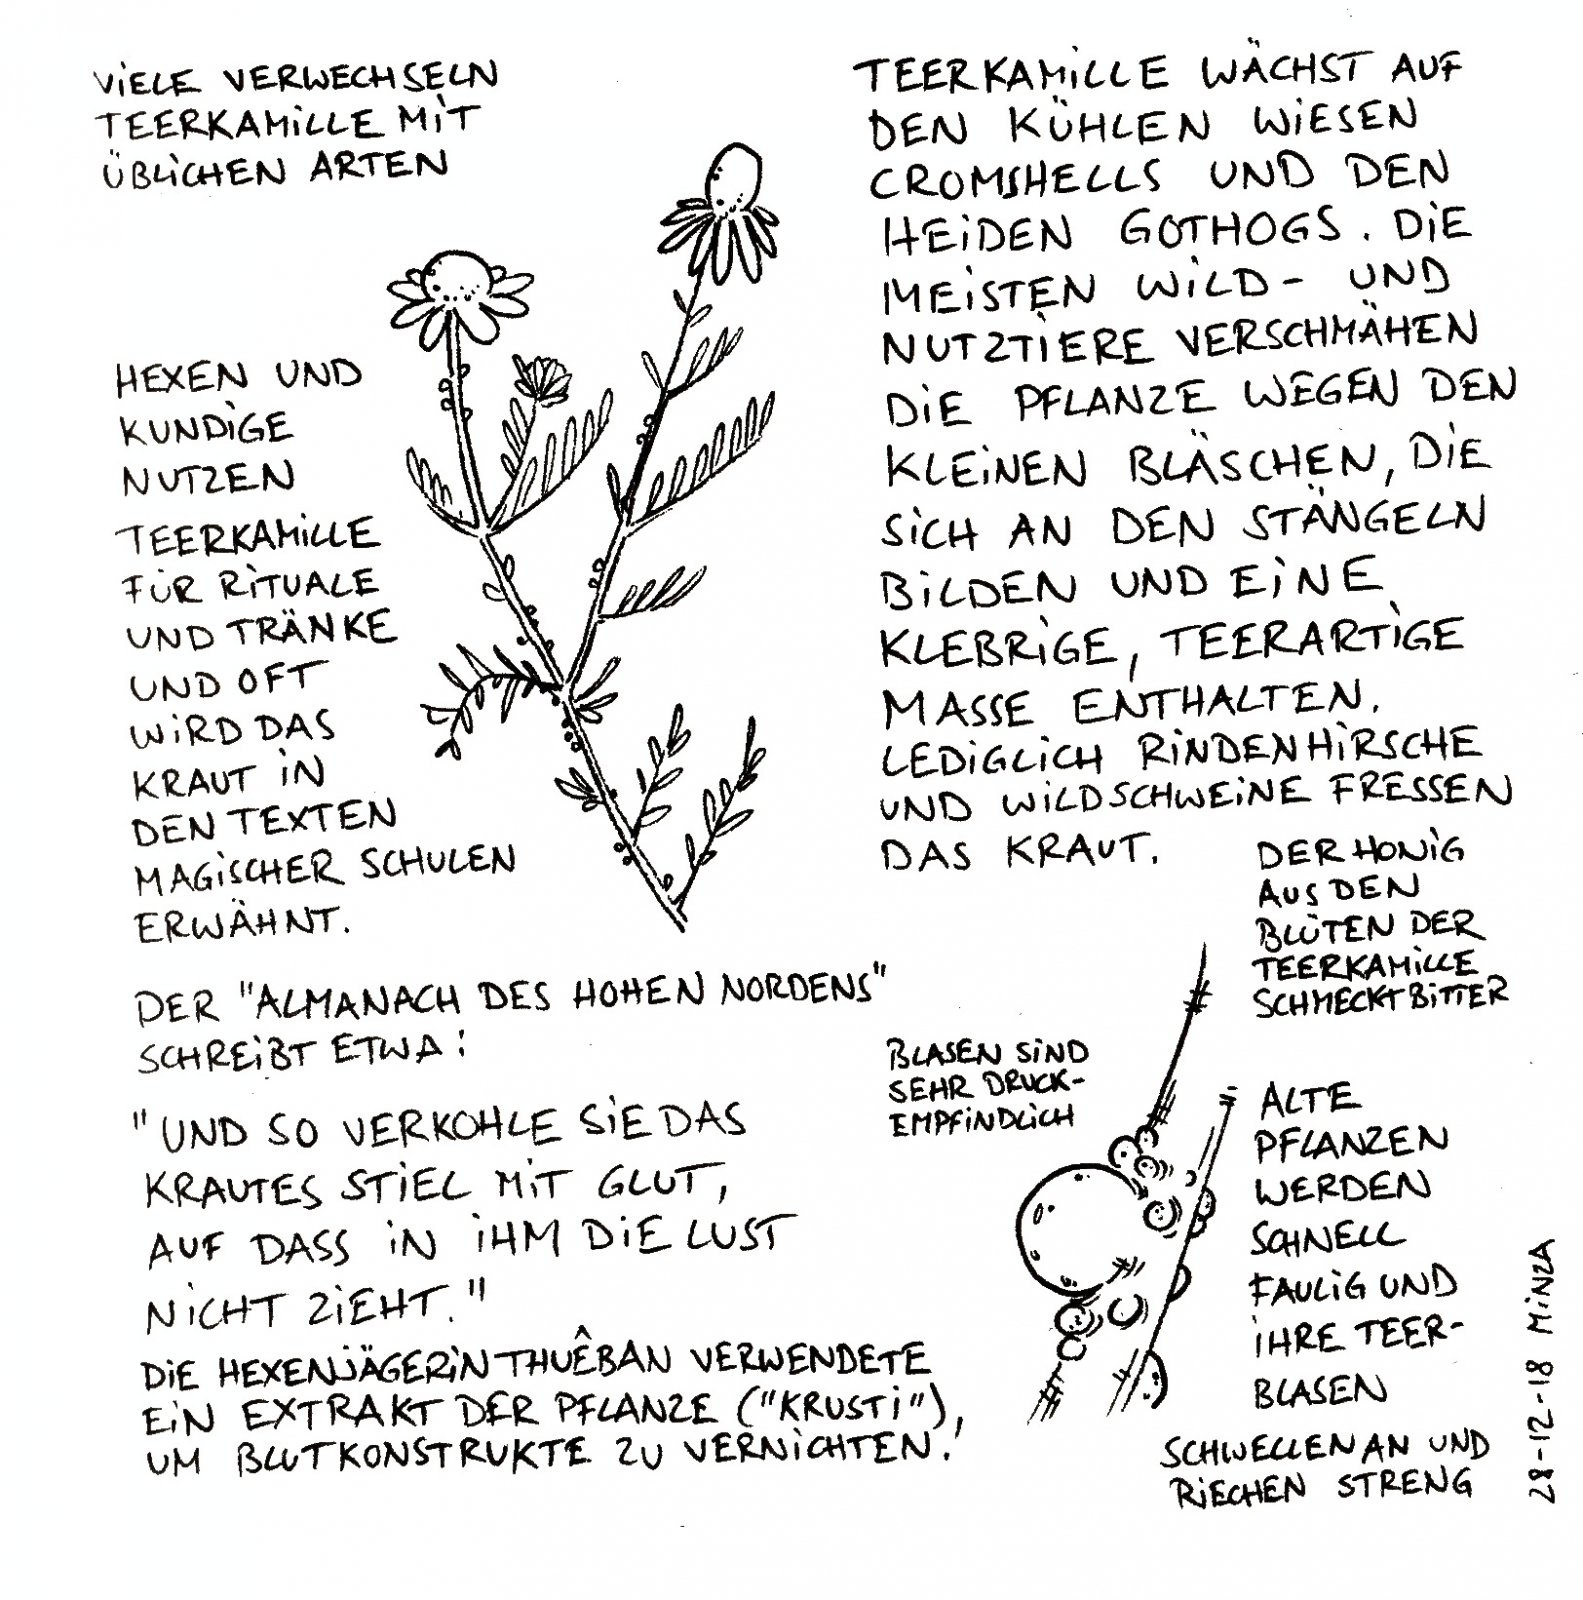 VIELE VERWECHSELN
TEERKAMILLE MIT
ÜBLICHEN ARTEN
HEXEN UND
KUNDIGE
NUTZEN
TEERKAMILLE
FÜR RITUALE
UND TRÄNKE
UND OFT
WIRD DAS
KRAUT IN
DEN TEXTEN
MAGISCHER SCHULEN
ERWÄHNT.
DER "ALMANACH DES HOHEN NORDENS"
SCHREIBT ETWA:
"UND SO VERKOHLE SIE DAS
KRAUTES STIEL MIT GLUT,
AUF DASS IN IHM DIE LUST
NICHT ZIEHT."
DIE HEXENJÄGERIN THUÊBAN VERWENDETE
EIN EXTRAKT DER PFLANZE ("KRUSTI"),
UM BLUTKONSTRUKTE ZU VERNICHTEN!
TEERKAMILLE WÄCHST AUF
DEN KÜHLEN WIESEN
CROMSHELLS UND DEN
HEIDEN GOTHOGS. DIE
MEISTEN WILD- UND
NUTZTIERE VERSCHMÄHEN
DIE PFLANZE WEGEN DEN
KLEINEN BLÄSCHEN, DIE
SICH AN DEN STÄNGELN
BILDEN UND EINE
KLEBRIGE, TEERARTIGE
MASSE ENTHALTEN.
LEDIGLICH RINDENHIRSCHE
UND WILDSCHWEINE FRESSEN
DAS KRAUT.
DER HONIG
AUS DEN
BLÜTEN DER
TEERKAMILLE
SCHMECKT BITTER
BLASEN SIND
SEHR DRUCK-
EMPFINDLICH
ALTE
PFLANZEN
WERDEN
SCHNELL
FAULIG UND
IHRE TEER-
BLASEN
SCHWELLEN AN UND
RIECHEN STRENG
28-12-18 MINZA